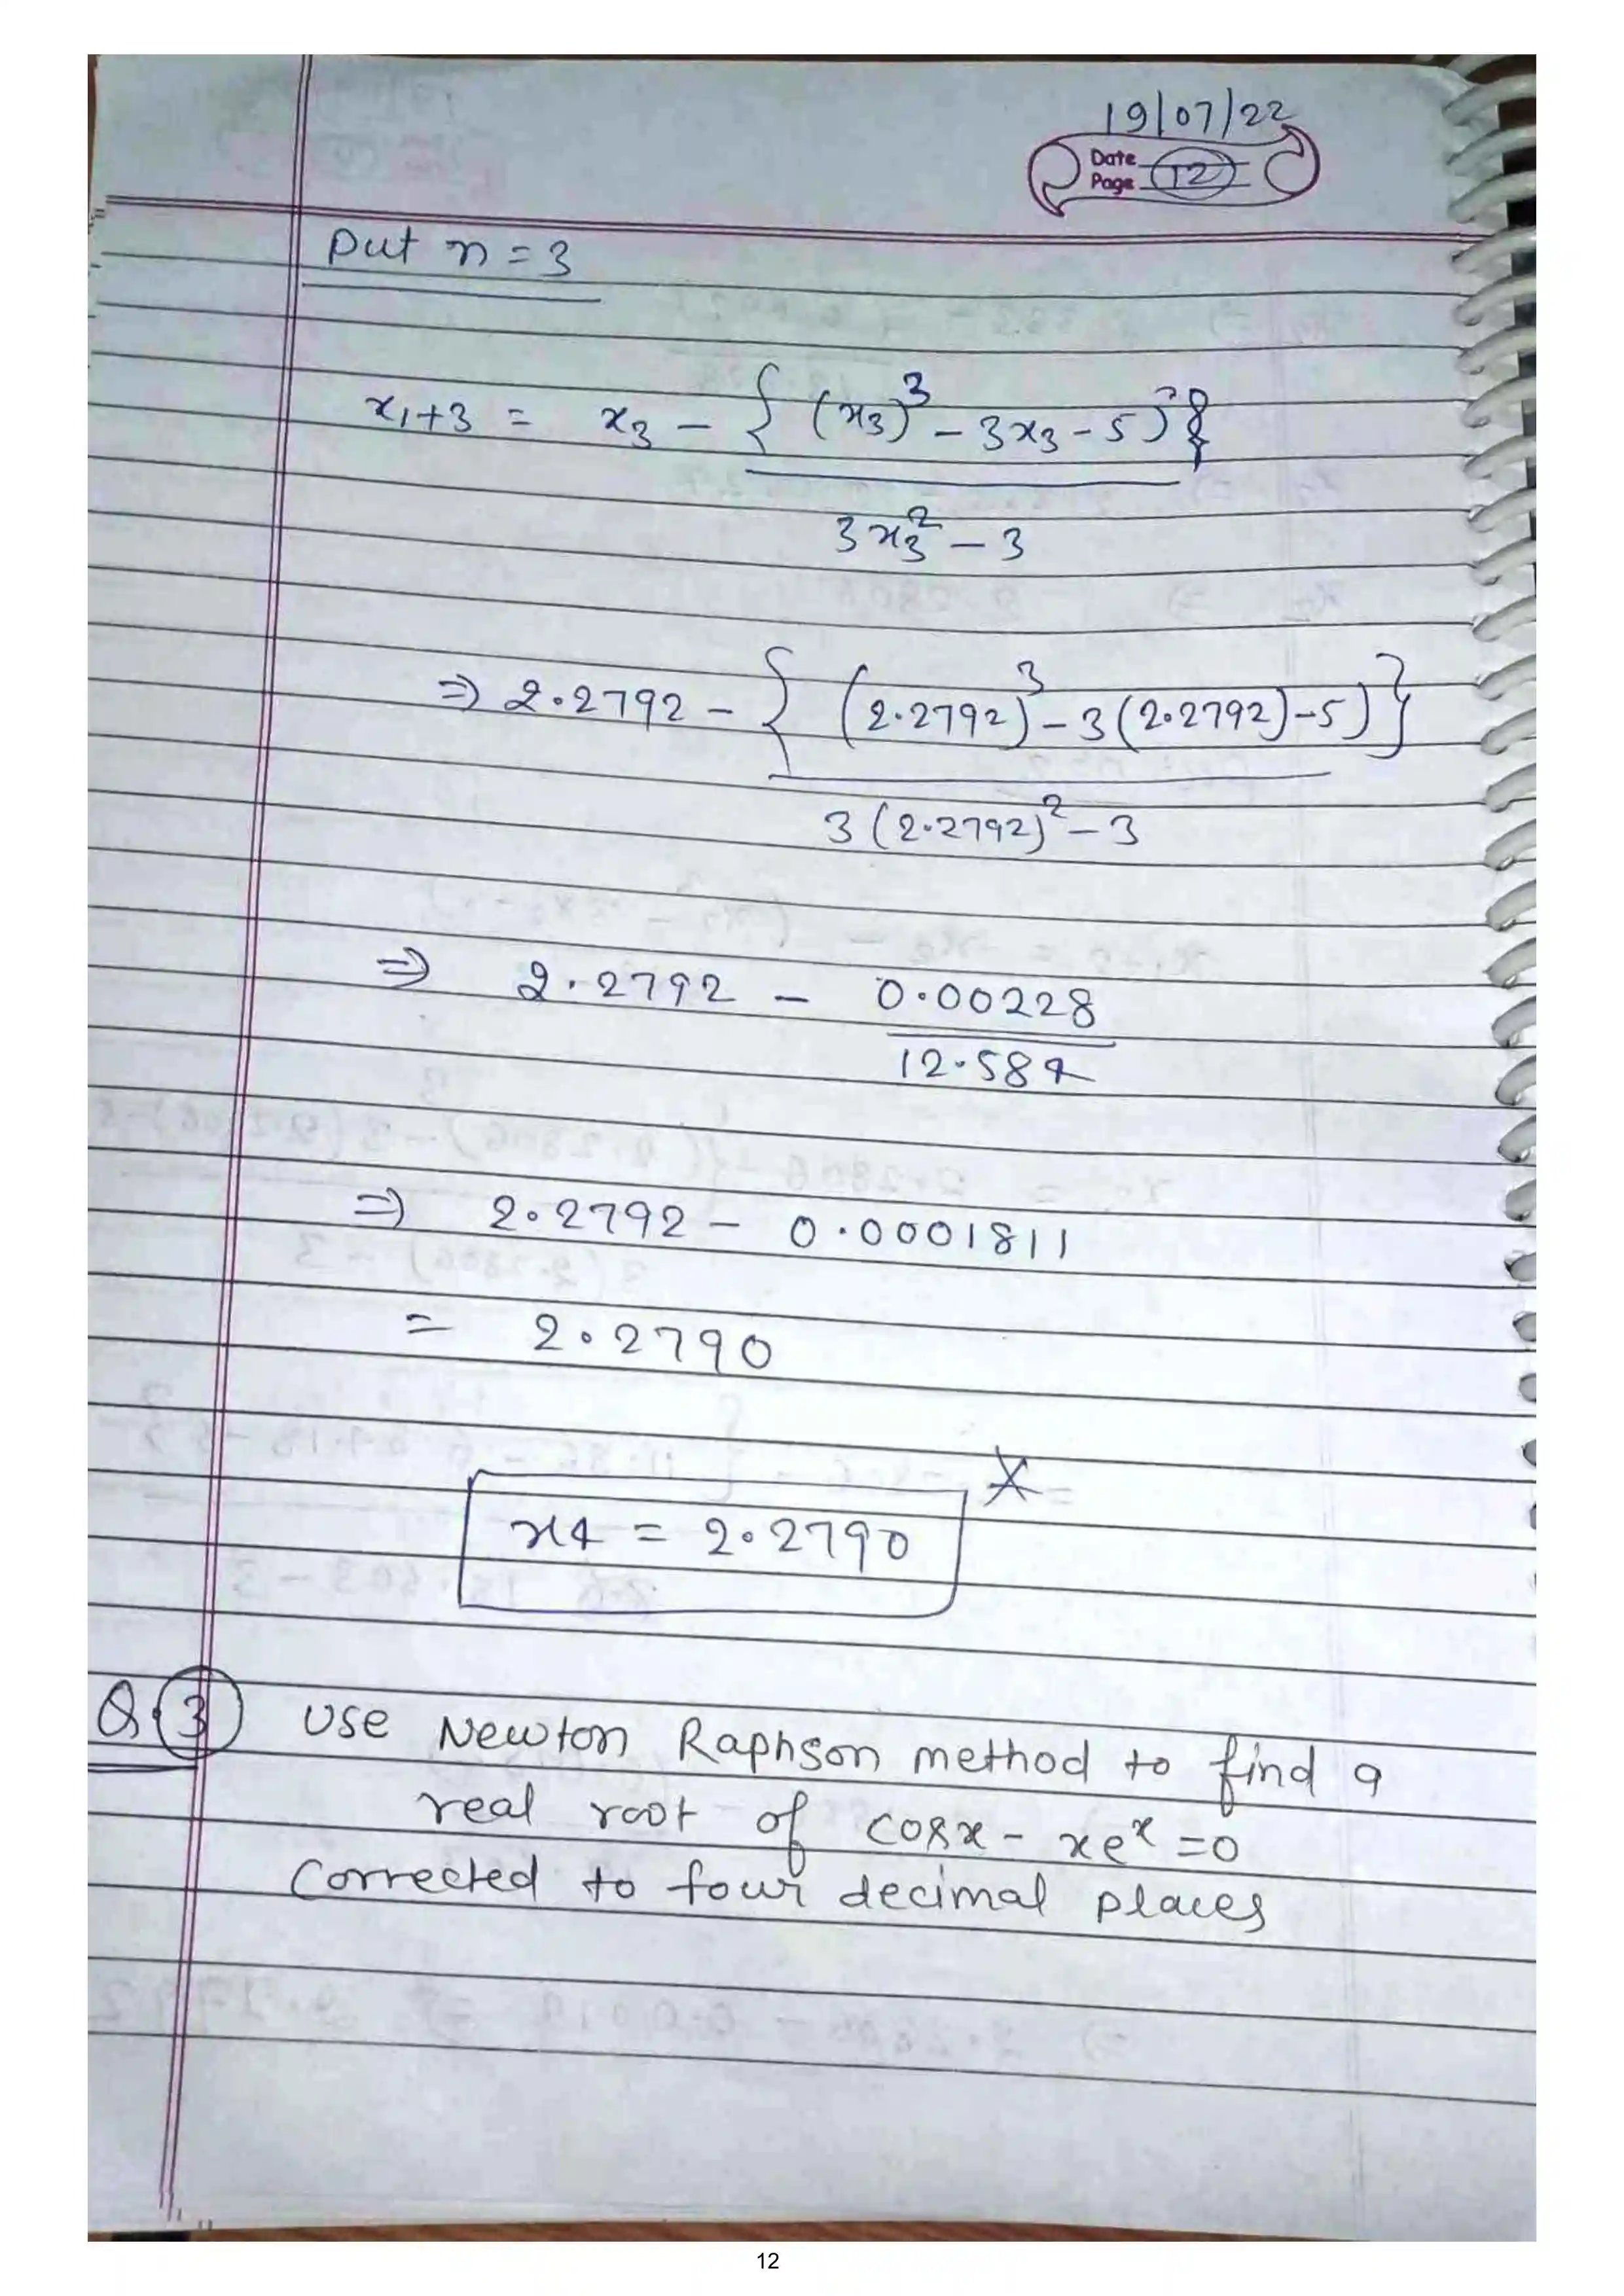 19/07/22
Date
Page 12
Put n = 3
x1+3 = x3 - { (x3)^3 - 3x3 - 5) }
3x3^2 - 3
⇒ 2.2792 - { (2.2792)^3 - 3(2.2792) - 5) }
3 (2.2792)^2 - 3
⇒ 2.2792 - 0.00228
12.584
⇒ 2.2792 - 0.0001811
= 2.2790
x4 = 2.2790
Q.3 Use Newton Raphson method to find a
real root of cosx - xe^x = 0
Corrected to four decimal places
12